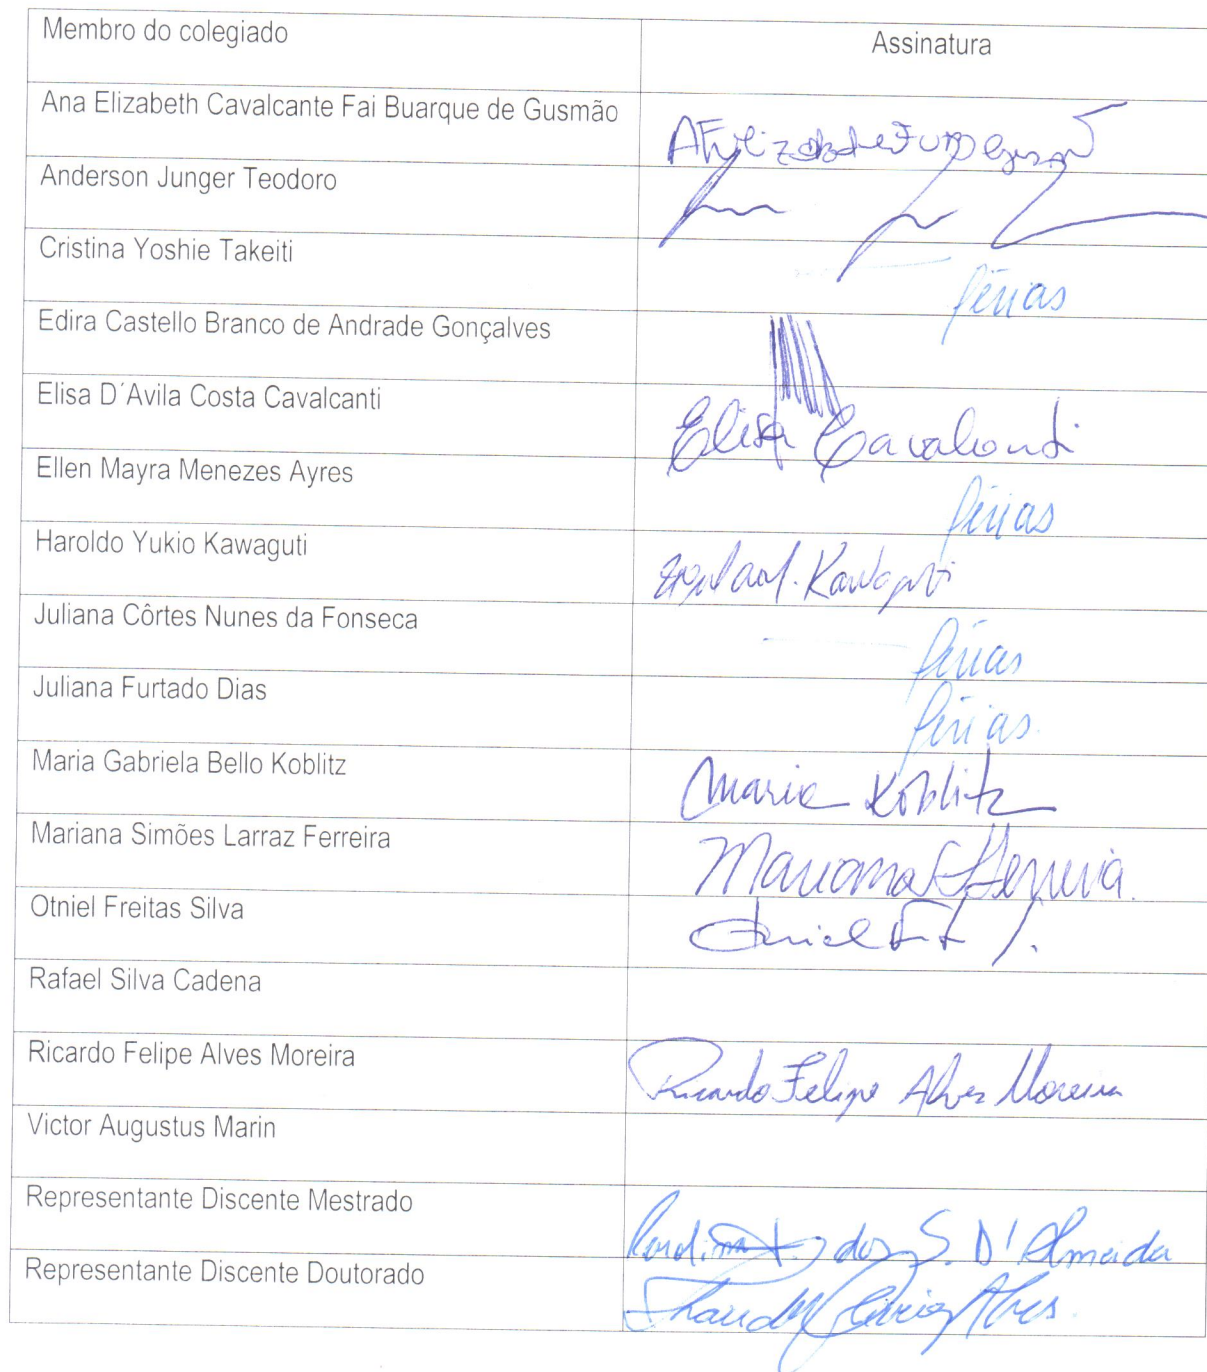 Membro do colegiado Assinatura
Ana Elizabeth Cavalcante Fai Buarque de Gusmão
Anderson Junger Teodoro
Cristina Yoshie Takeiti férias
Edira Castello Branco de Andrade Gonçalves
Elisa D´Avila Costa Cavalcanti Elisa Cavalcanti
Ellen Mayra Menezes Ayres férias
Haroldo Yukio Kawaguti Kawaguti
Juliana Côrtes Nunes da Fonseca férias
Juliana Furtado Dias férias.
Maria Gabriela Bello Koblitz Maria Koblitz
Mariana Simões Larraz Ferreira Mariana S Ferreira.
Otniel Freitas Silva
Rafael Silva Cadena
Ricardo Felipe Alves Moreira Ricardo Felipe Alves Moreira
Victor Augustus Marin
Representante Discente Mestrado dos S. D'Almeida
Representante Discente Doutorado Alves.